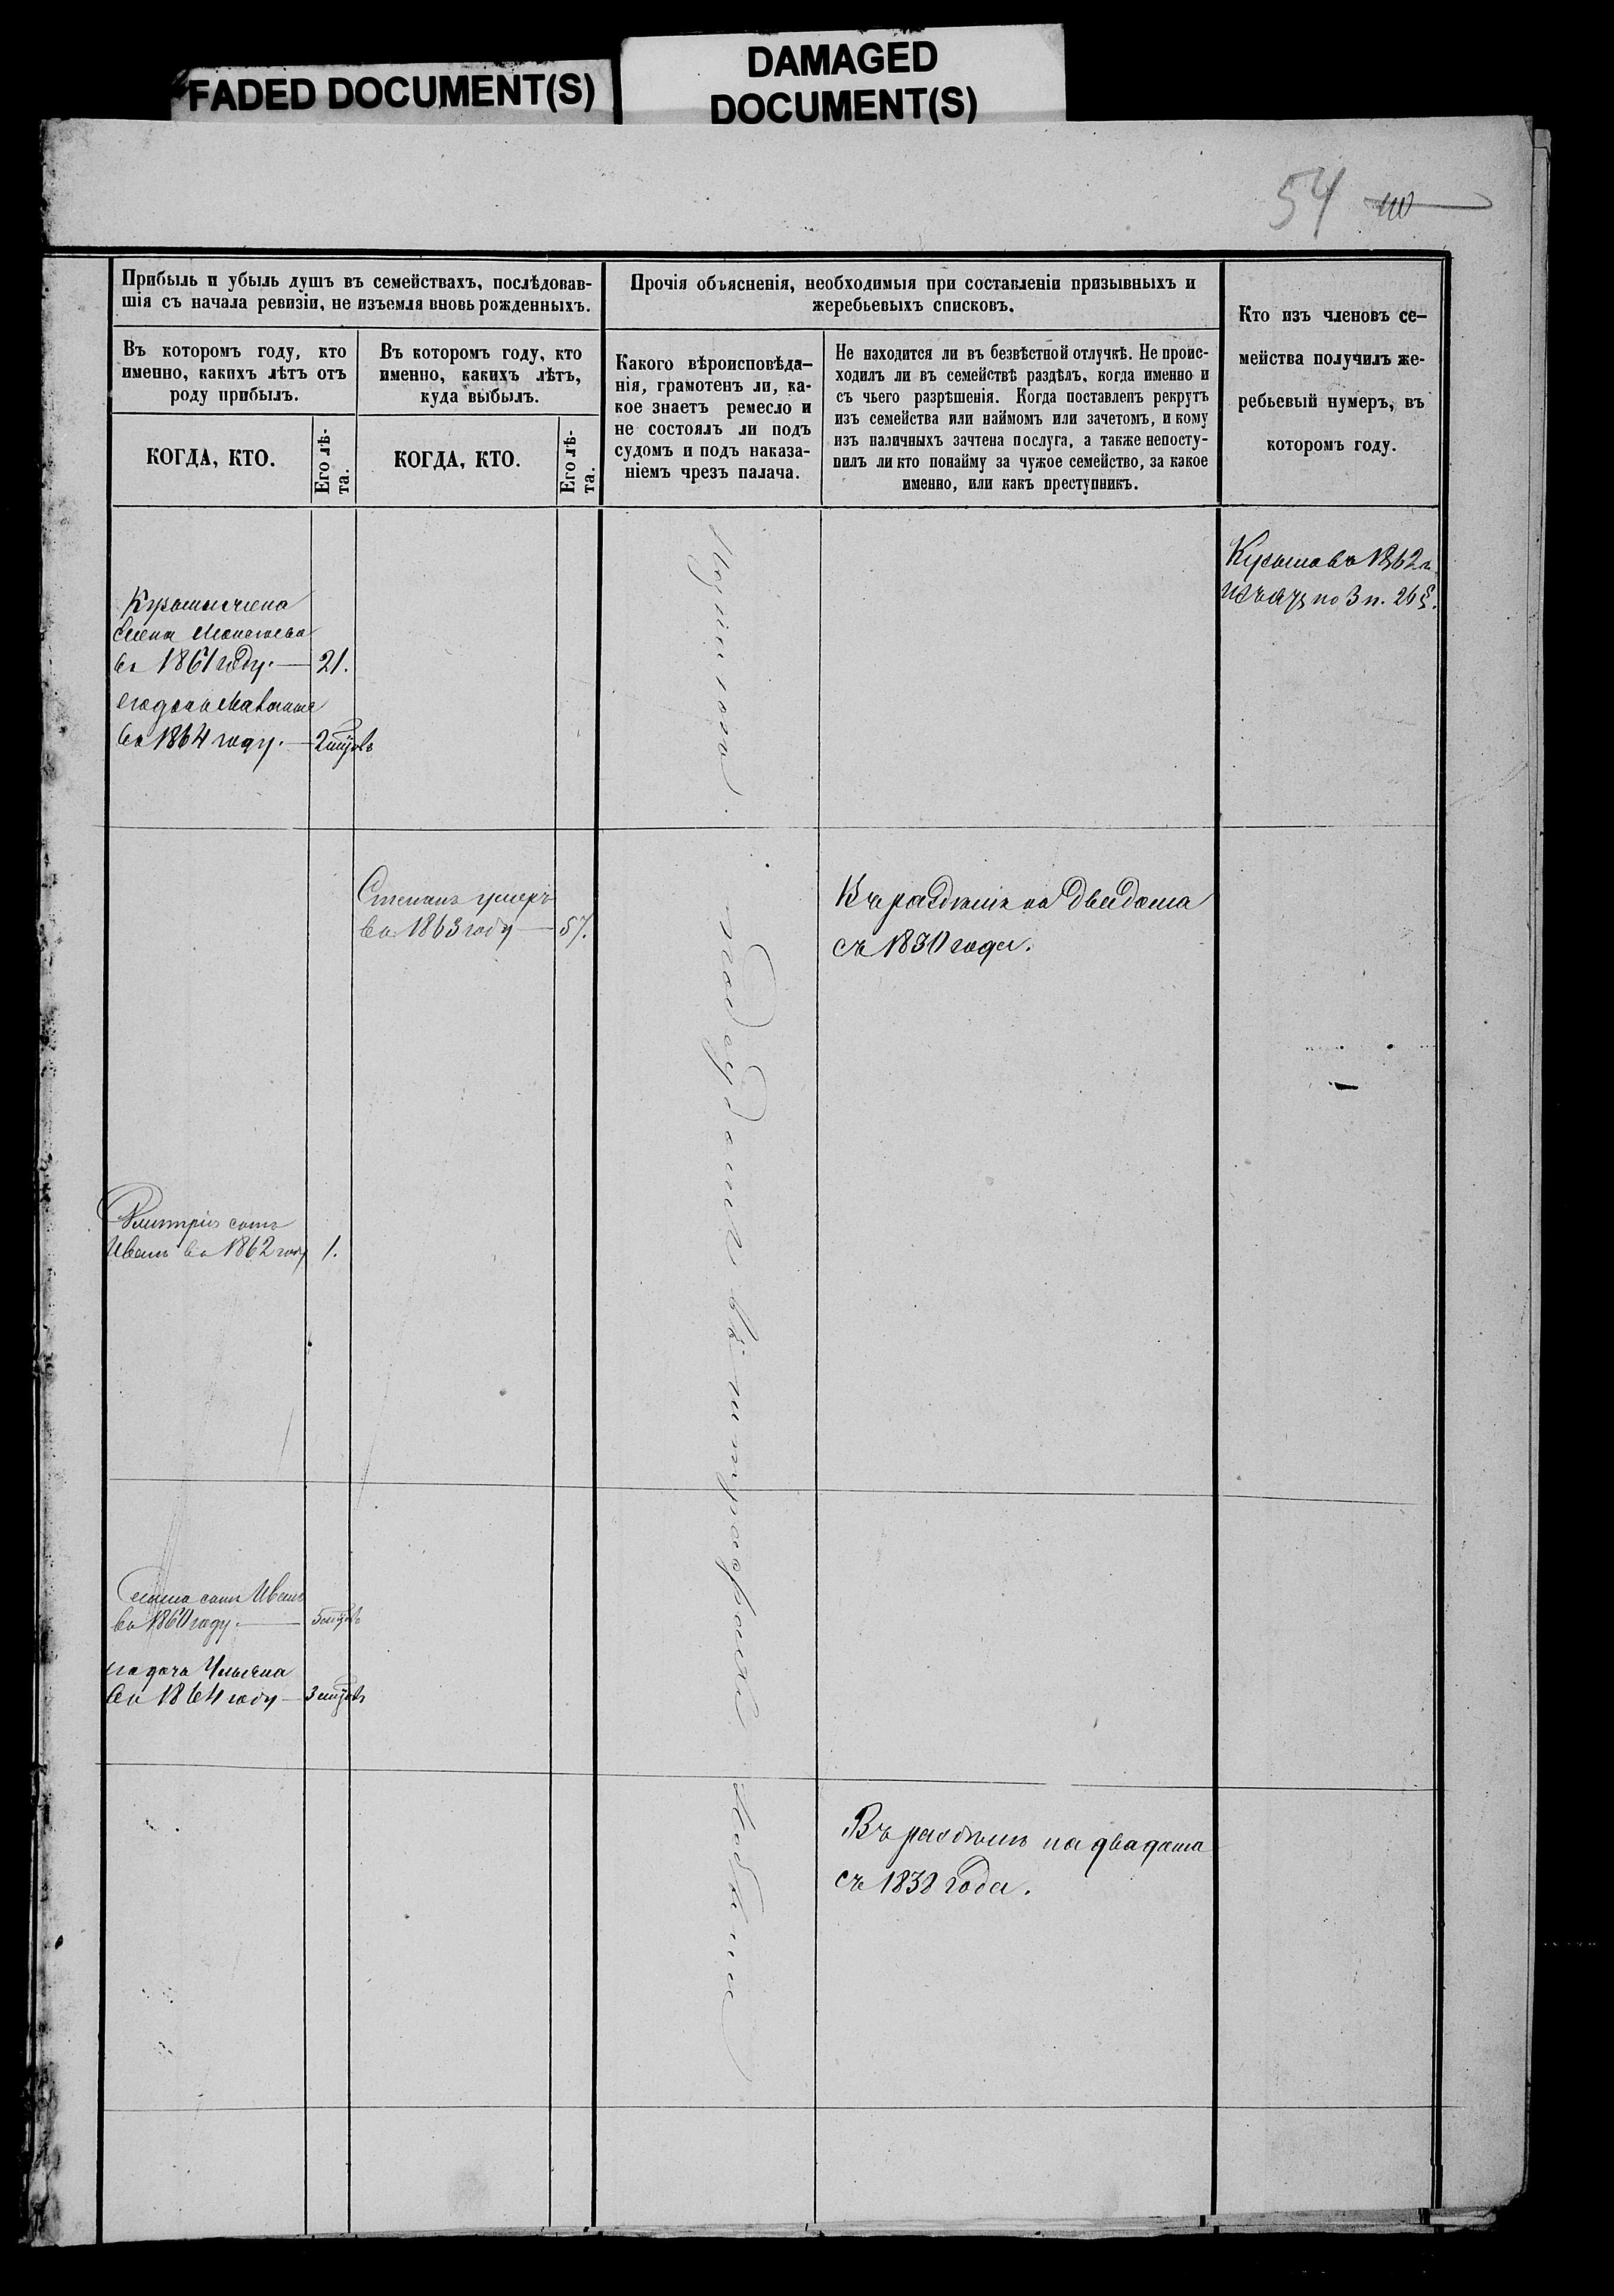 FADED DOCUMENT(S)
DAMAGED
DOCUMENT(S)
54
Прибыль и убыль душъ въ семействахъ, послѣдовав-
шія съ начала ревизіи, не изъемля вновь рожденныхъ.
Въ которомъ году, кто
именно, какихъ лѣтъ отъ
роду прибылъ.
КОГДА, КТО.
Его лѣ-
та.
Въ которомъ году, кто
именно, какихъ лѣтъ,
куда выбылъ.
КОГДА, КТО.
Его лѣ-
та.
Прочія объясненія, необходимыя при составленіи призывныхъ и
жеребьевыхъ списковъ.
Какого вѣроисповѣда-
нія, грамотенъ ли, ка-
кое знаетъ ремесло и
не состоялъ ли подъ
судомъ и подъ наказа-
ніемъ чрезъ палача.
Не находится ли въ безвѣстной отлучкѣ. Не проис-
ходилъ ли въ семействѣ раздѣлъ, когда именно и
съ чьего разрѣшенія. Когда поставленъ рекрутъ
изъ семейства или наймомъ или зачетомъ, и кому
изъ наличныхъ зачтена послуга, а также непосту-
пилъ ли кто понайму за чужое семейство, за какое
именно, или какъ преступникъ.
Кто изъ членовъ се-
мейства получилъ же-
ребьевый нумеръ, въ
которомъ году.
1862
по 3 п. 26 §.
жена
въ 1861 году. 21.
его дочь
въ 1864 году. 2
Степанъ умеръ
въ 1863 году 57.
Въ раздѣлѣ на два дома
съ 1830 года.
Дмитрія сынъ
Иванъ въ 1862 году 1.
сынъ Иванъ
въ 1860 году. 5
дочь Ульяна
въ 1864 году 3
Въ раздѣлѣ на два дома
съ 1838 года.